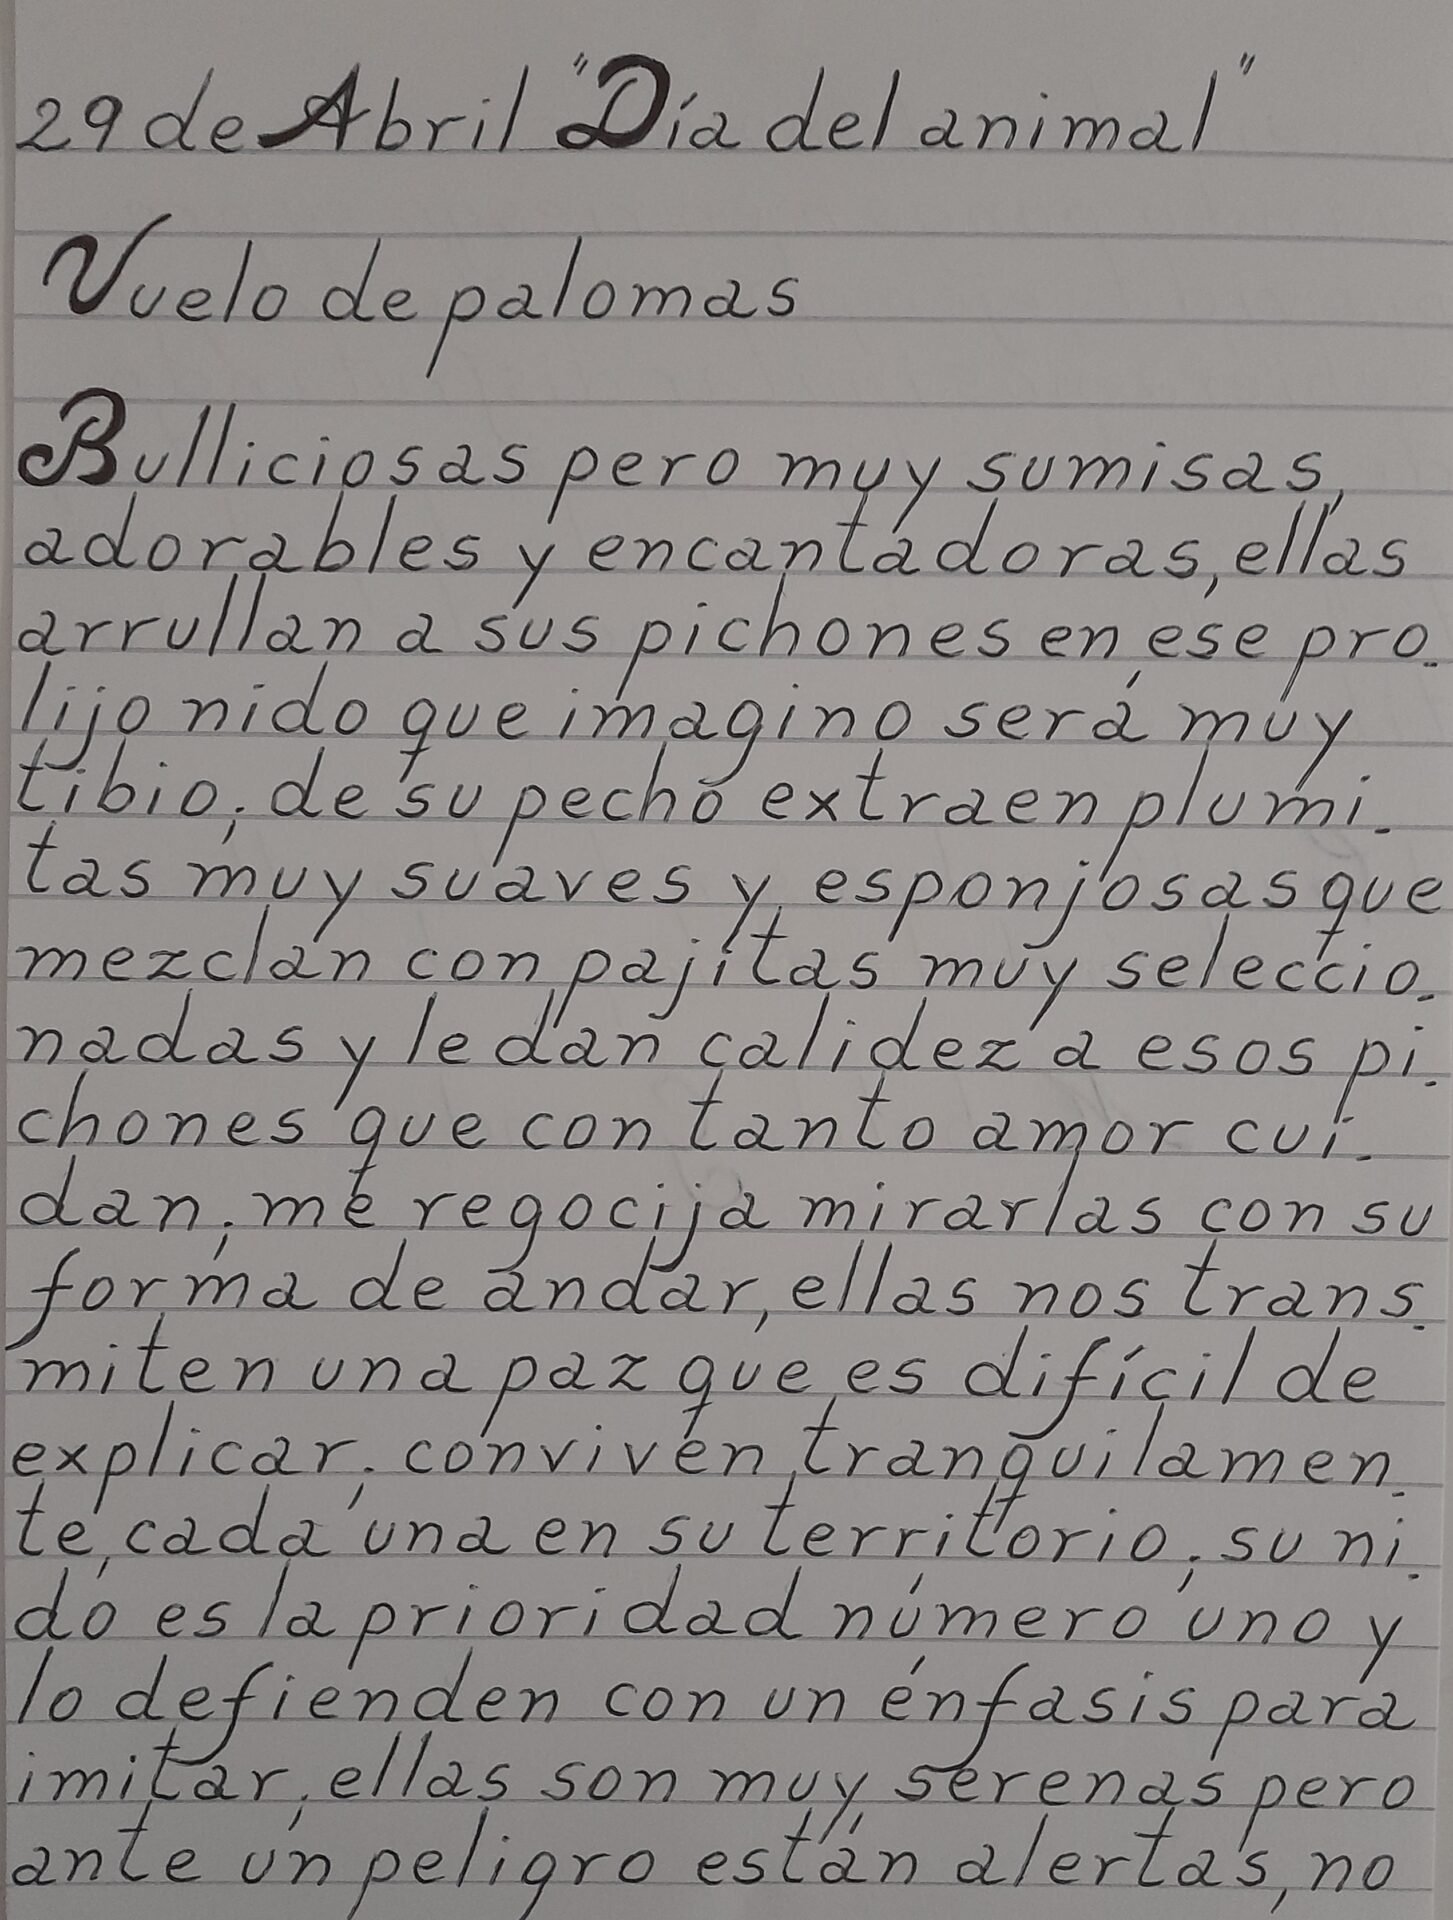 29 de Abril "Día del animal"
Vuelo de palomas
Bulliciosas pero muy sumisas,
adorables y encantadoras, ellas
arrullan a sus pichones en ese pro-
lijo nido que imagino será muy
tibio; de su pecho extraen plumi-
tas muy suaves y esponjosas que
mezclan con pajitas muy seleccio-
nadas y le dan calidez a esos pi-
chones que con tanto amor cui-
dan; me regocija mirarlas con su
forma de andar, ellas nos trans-
miten una paz que es difícil de
explicar; conviven tranquilamen-
te, cada una en su territorio; su ni-
do es la prioridad número uno y
lo defienden con un énfasis para
imitar; ellas son muy serenas pero
ante un peligro están alertas, no